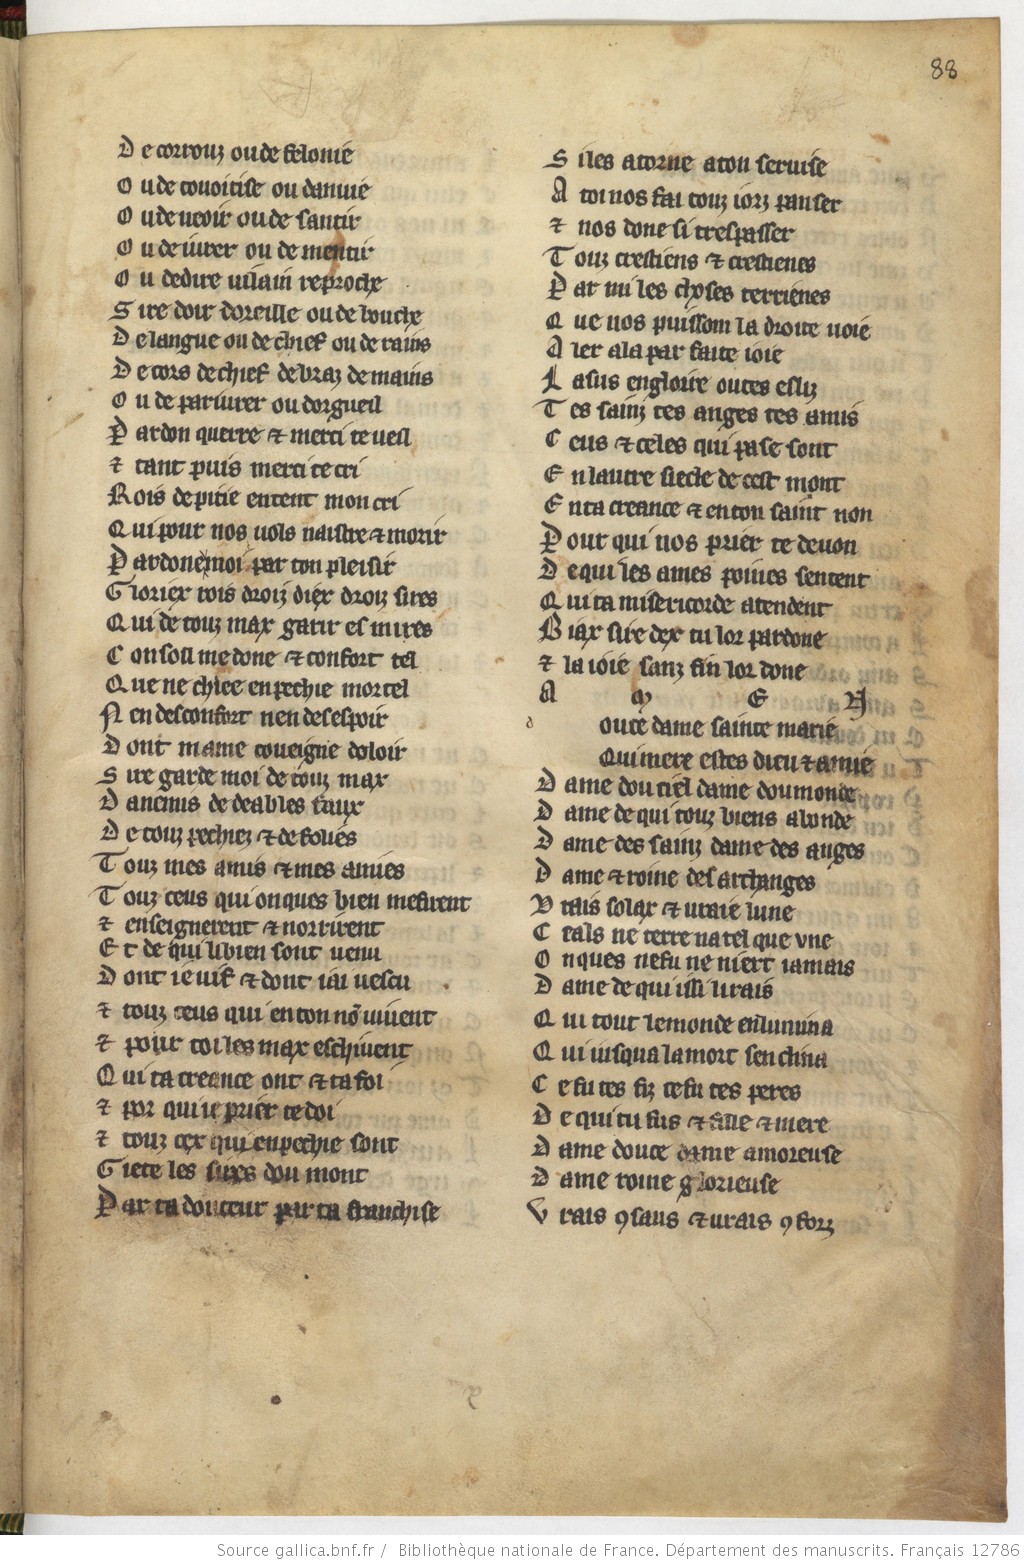 88
De corrouz ou de felonie
Ou de couoitise ou danuie
Ou de ueoir ou de santir
Ou de iurer ou de mentir
Ou de dire uilain reproche
Sire doir doreille ou de bouche
De langue ou de chief ou de rains
De cors de chief de braz de mains
Ou de pariurer ou dorgueil
Pardon querre & merci te ueil
& tant puis merci te cri
Rois de pitie entent mon cri
Qui pour nos uols naistre & morir
Pardone moi par ton pleisir
Gloriex rois droiz diex droiz sires
Qui de touz max garir es mires
Consoil me done & confort tel
Que ne chiee en pechie mortel
Nen desconfort nen desespoir
Dont mame coueigne doloir
Sire garde moi de touz max
Danemis de deables faux
De touz pechiez & de
Touz mes amis & mes amies
Touz ceus qui onques bien me firent
& enseignerent & norrirent
Et de qui li bien sont uenu
Dont ie uif & dont iai uescu
& touz ceus qui en ton nō uiuent
& pour toi les max eschiuent
Qui ta creance ont & ta foi
& por qui ie prier te doi
& touz cex qui en pechie sont
Giete les sires dou mont
Par ta douceur par ta franchise
Si les atorne a ton seruise
A toi nos fai touz iorz panser
& nos done si trespasser
Touz crestiens & crestienes
Par mi les choses terrienes
Que nos puissom la droite uoie
Aler a la par faite ioie
Lasus en gloire ou tes esliz
Tes sainz tes anges tes amis
Ceus & celes qui pase sont
En lautre siecle de cest mont
En ta creance & en ton saint non
Pour qui nos prier te deuon
De qui les ames poines sentent
Qui ta misericorde atendent
Biax sire dex tu lor pardone
& la ioie sanz fin lor done
A M E N
d
ouce dame sainte marie
Qui mere estes dieu & amie
Dame dou ciel dame dou monde
Dame de qui touz biens abonde
Dame des sainz dame des anges
Dame & roine des archanges
Vrais solax & uraie lune
Tals ne terre na tel que vne
Onques ne fu ne niert iamais
Dame de qui issi li rais
Qui tout le monde enlumina
Qui iusqua la mort senclina
Ce fu tes fiz ce fu tes peres
De qui tu fus & fille & mere
Dame douce dame amoreuse
Dame roine glorieuse
Vrais 9saus & urais 9forz
Source gallica.bnf.fr / Bibliothèque nationale de France. Département des manuscrits. Français 12786